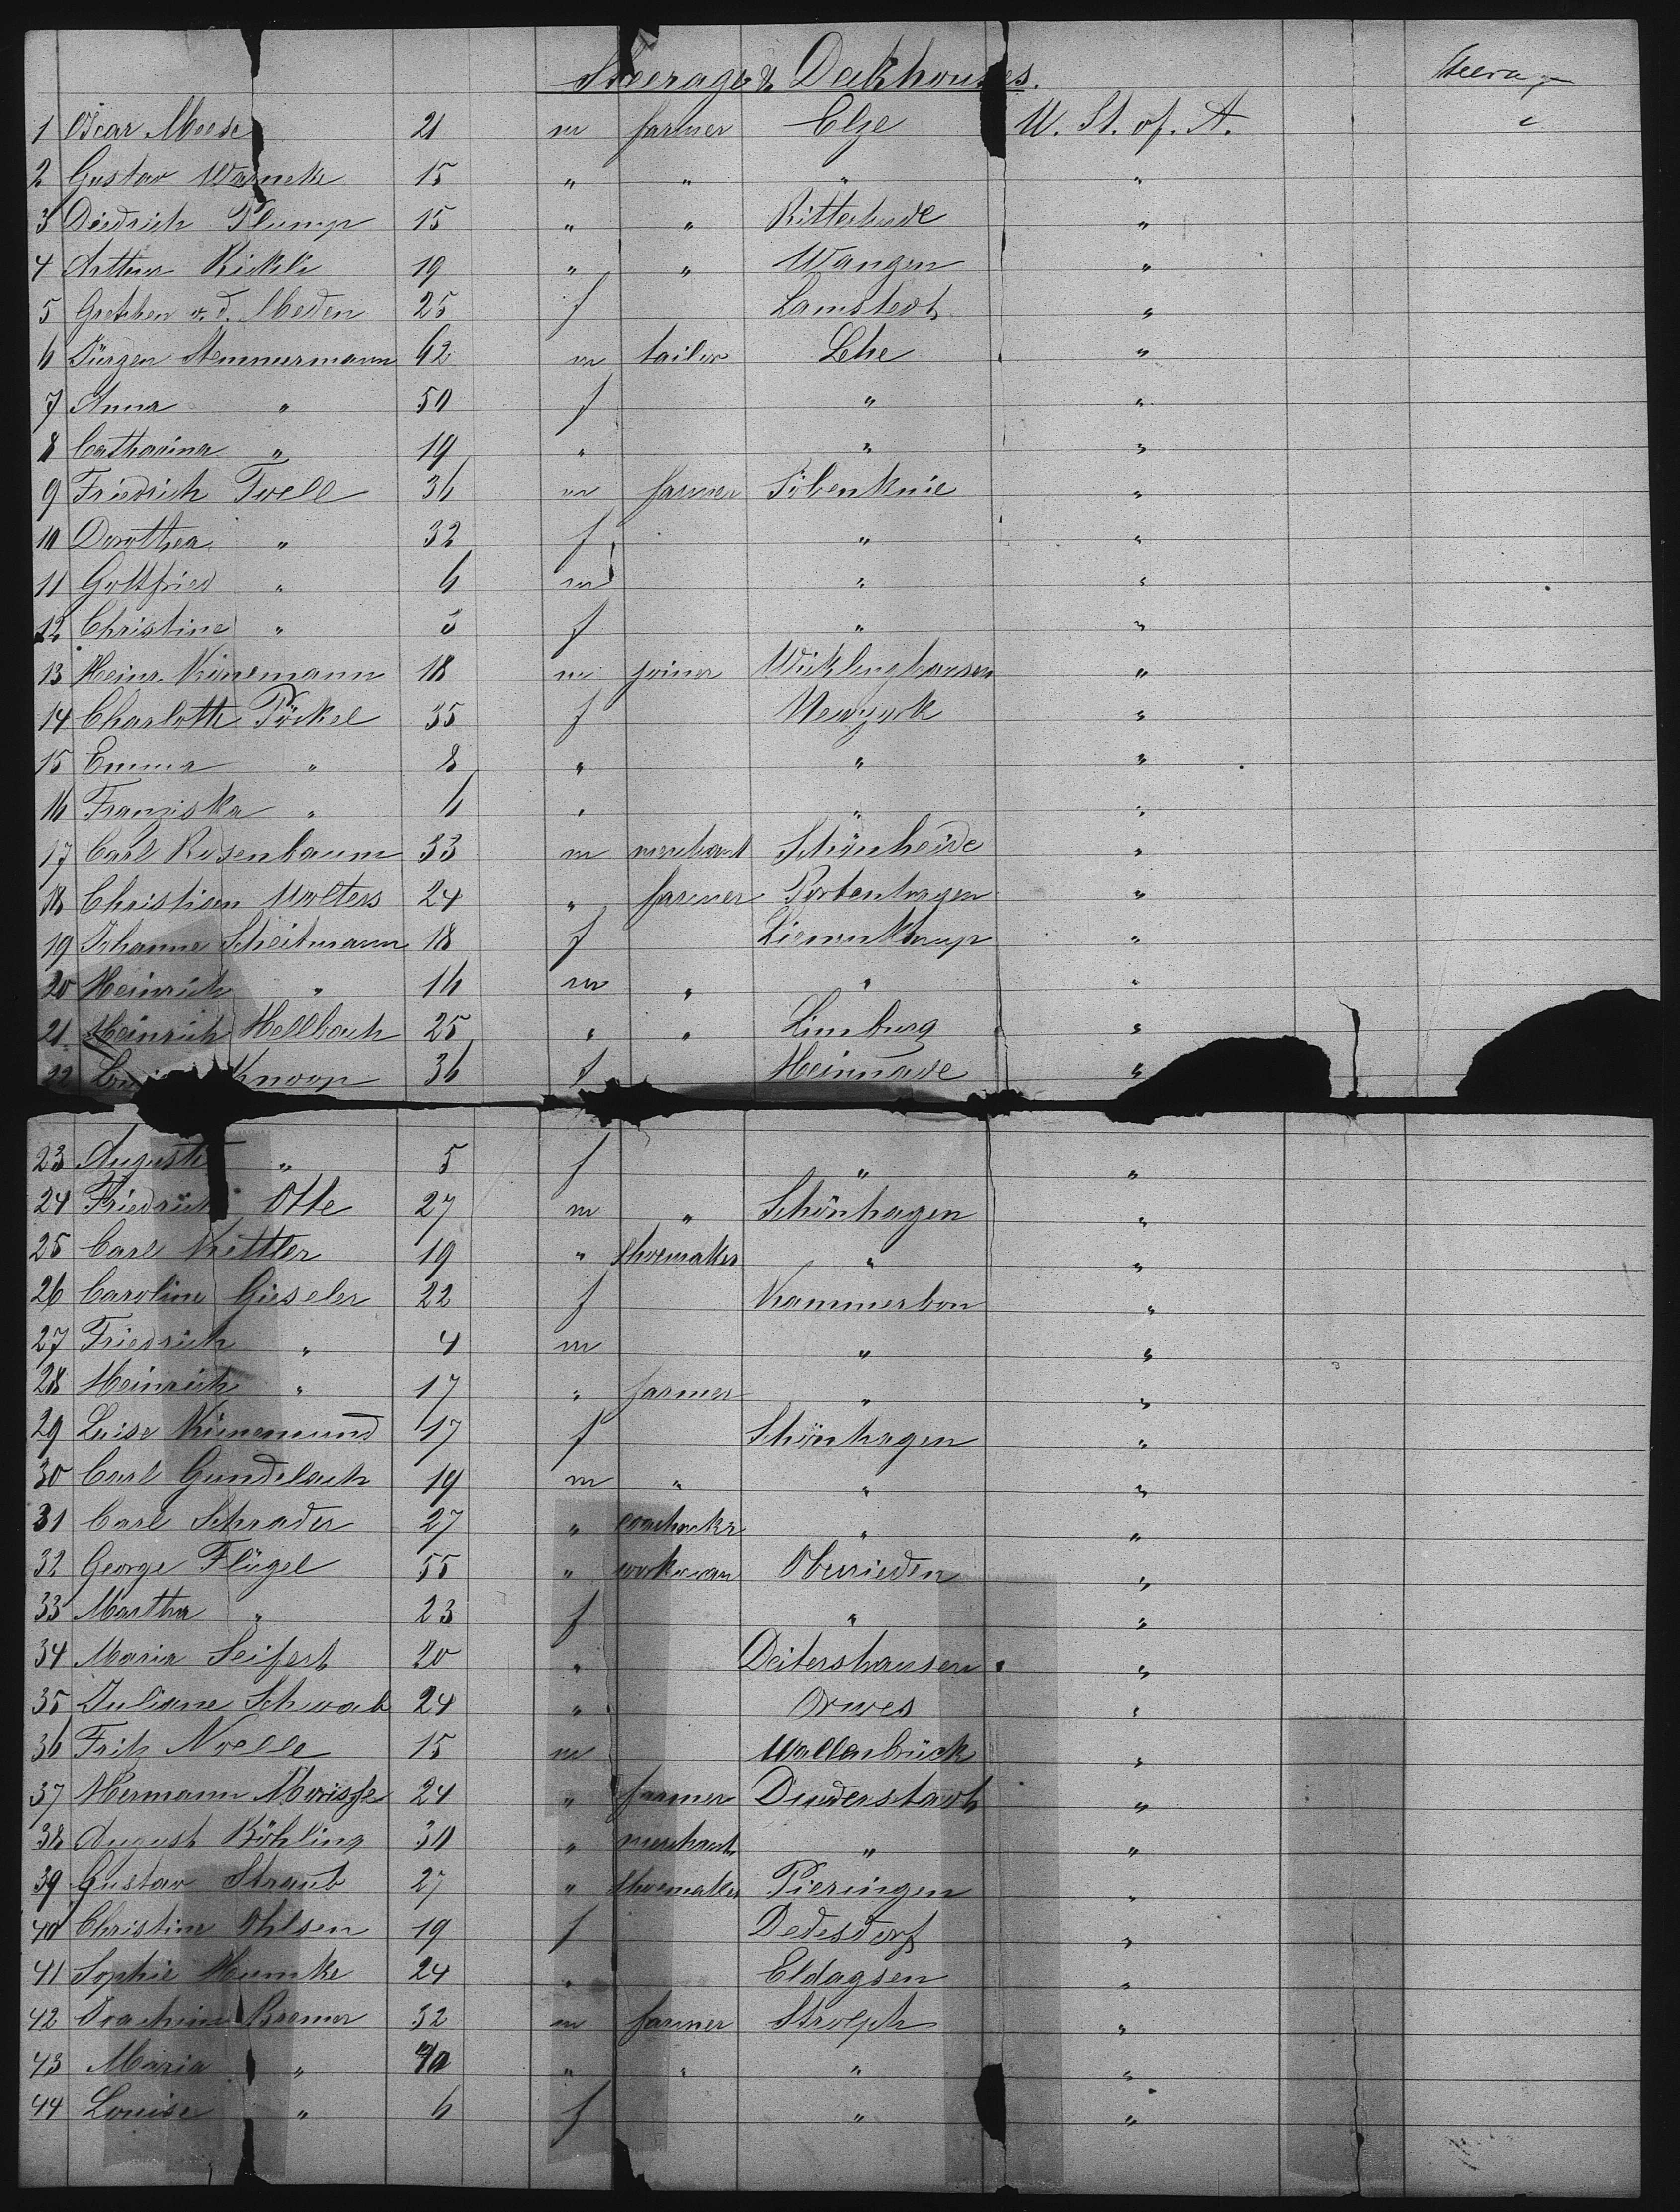 Steerage & Deckhouses.
1 Oscar Meese 21 m farmer Elze U. St. of. A.
2 Gustav Warneke 15 " " " "
3 Diedrich Plump 15 " " Ritterhude "
4 Arthur Rickli 19 " " Wangen "
5 Gretchen v. d. Meden 25 f Lamstedt "
6 Jürgen Stemmermann 62 m tailor Lehe "
7 Anna " 50 f " "
8 Catharina " 19 " " "
9 Friedrich Twell 36 m farmer Sibenknie "
10 Dorothea " 32 f " "
11 Gottfried " 6 m " "
12 Christine " 3 f " "
13 Heinr. Künemann 18 m joiner "
14 Charlotte Pöckel 35 f Newyork "
15 Emma " 8 " " "
16 Franziska " 6 " " "
17 Carl Rosenbaum 33 m merchant Schönheide "
18 Christian Wolters 24 " farmer Portenhagen "
19 Johanne Scheitmann 18 f "
20 Heinrich " 16 m " " "
21 Heinrich Hellbach 25 " " Limburg "
22 Knoop 36 f Heinade "
23 Auguste " 5 f " "
24 Friedrich Otte 27 m " Schönhagen "
25 Carl Kettler 19 " shoemaker " "
26 Caroline Gieseler 22 f Kammerborn "
27 Friedrich " 4 m " "
28 Heinrich " 17 " farmer " "
29 Luise Künemund 17 f Schönhagen "
30 Carl Gundelach 19 m " " "
31 Carl Schrader 27 " " "
32 George Flügel 55 " workman Oberrieden "
33 Martha " 23 f " "
34 Maria Seifert 20 " Deitershausen "
35 Juliane Schwab 24 " "
36 Fritz Nolle 15 m Wallenbrück "
37 Hermann Morisse 24 " farmer Duderstadt "
38 August Böhling 30 " merchant " "
39 Gustav Straub 27 " shoemaker Pieringen "
40 Christine Ohlsen 19 f Dedesdorf "
41 Sophie Humke 24 " Eldagsen "
42 Joachim Bremer 32 m farmer "
43 Maria " " " " "
44 Louise " 6 f " "